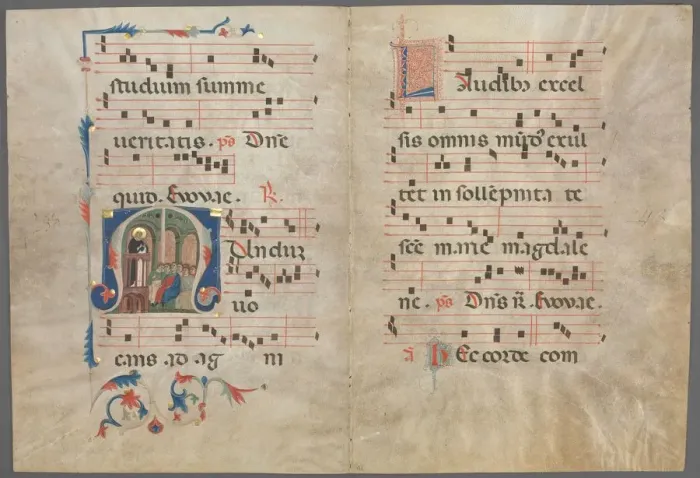 studium summe
ueritatis. ps̄ Dn̄e
quid. Evovae. R.
MUnduȝ
uo
cans ad ag ni
LAudibꝫ excel
sis omnis mūdꝰ exul
tet in sollēpnita te
scē marie magdale
ne. ps̄ Dn̄s r̄. Evovae.
ā HEc corde com